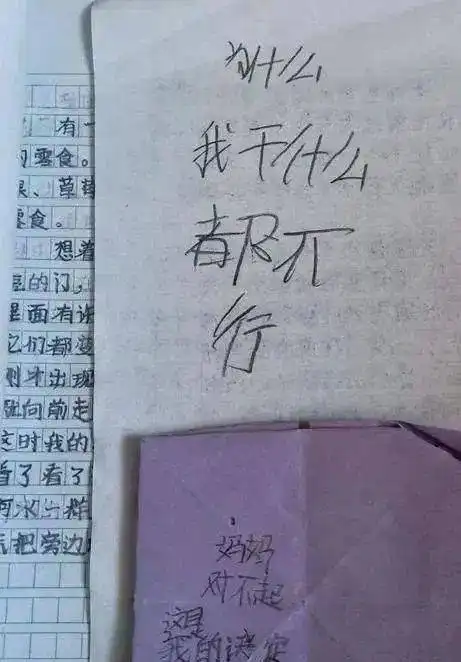 有一
的零食。
果、草莓
零食。
想着
的门，
里面有许
它们都变
刚才出现
向前走
这时我的
看了看了
河水一
把旁边
为什么
我干什么
都不
行
妈妈
对不起
这是
我的